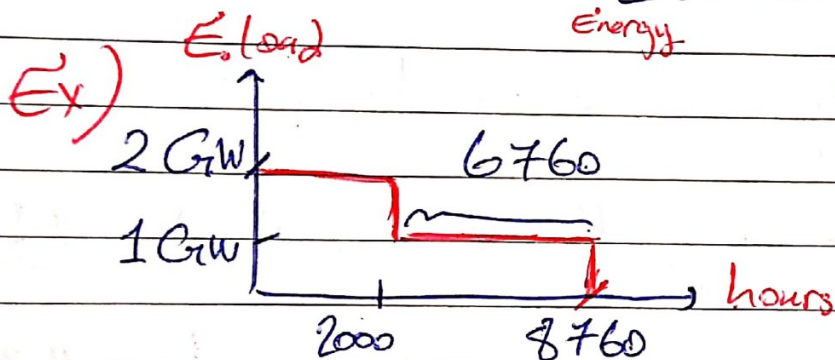 Energy
E.load
Ex)
2 GW
6760
1 GW
hours
2000
8760